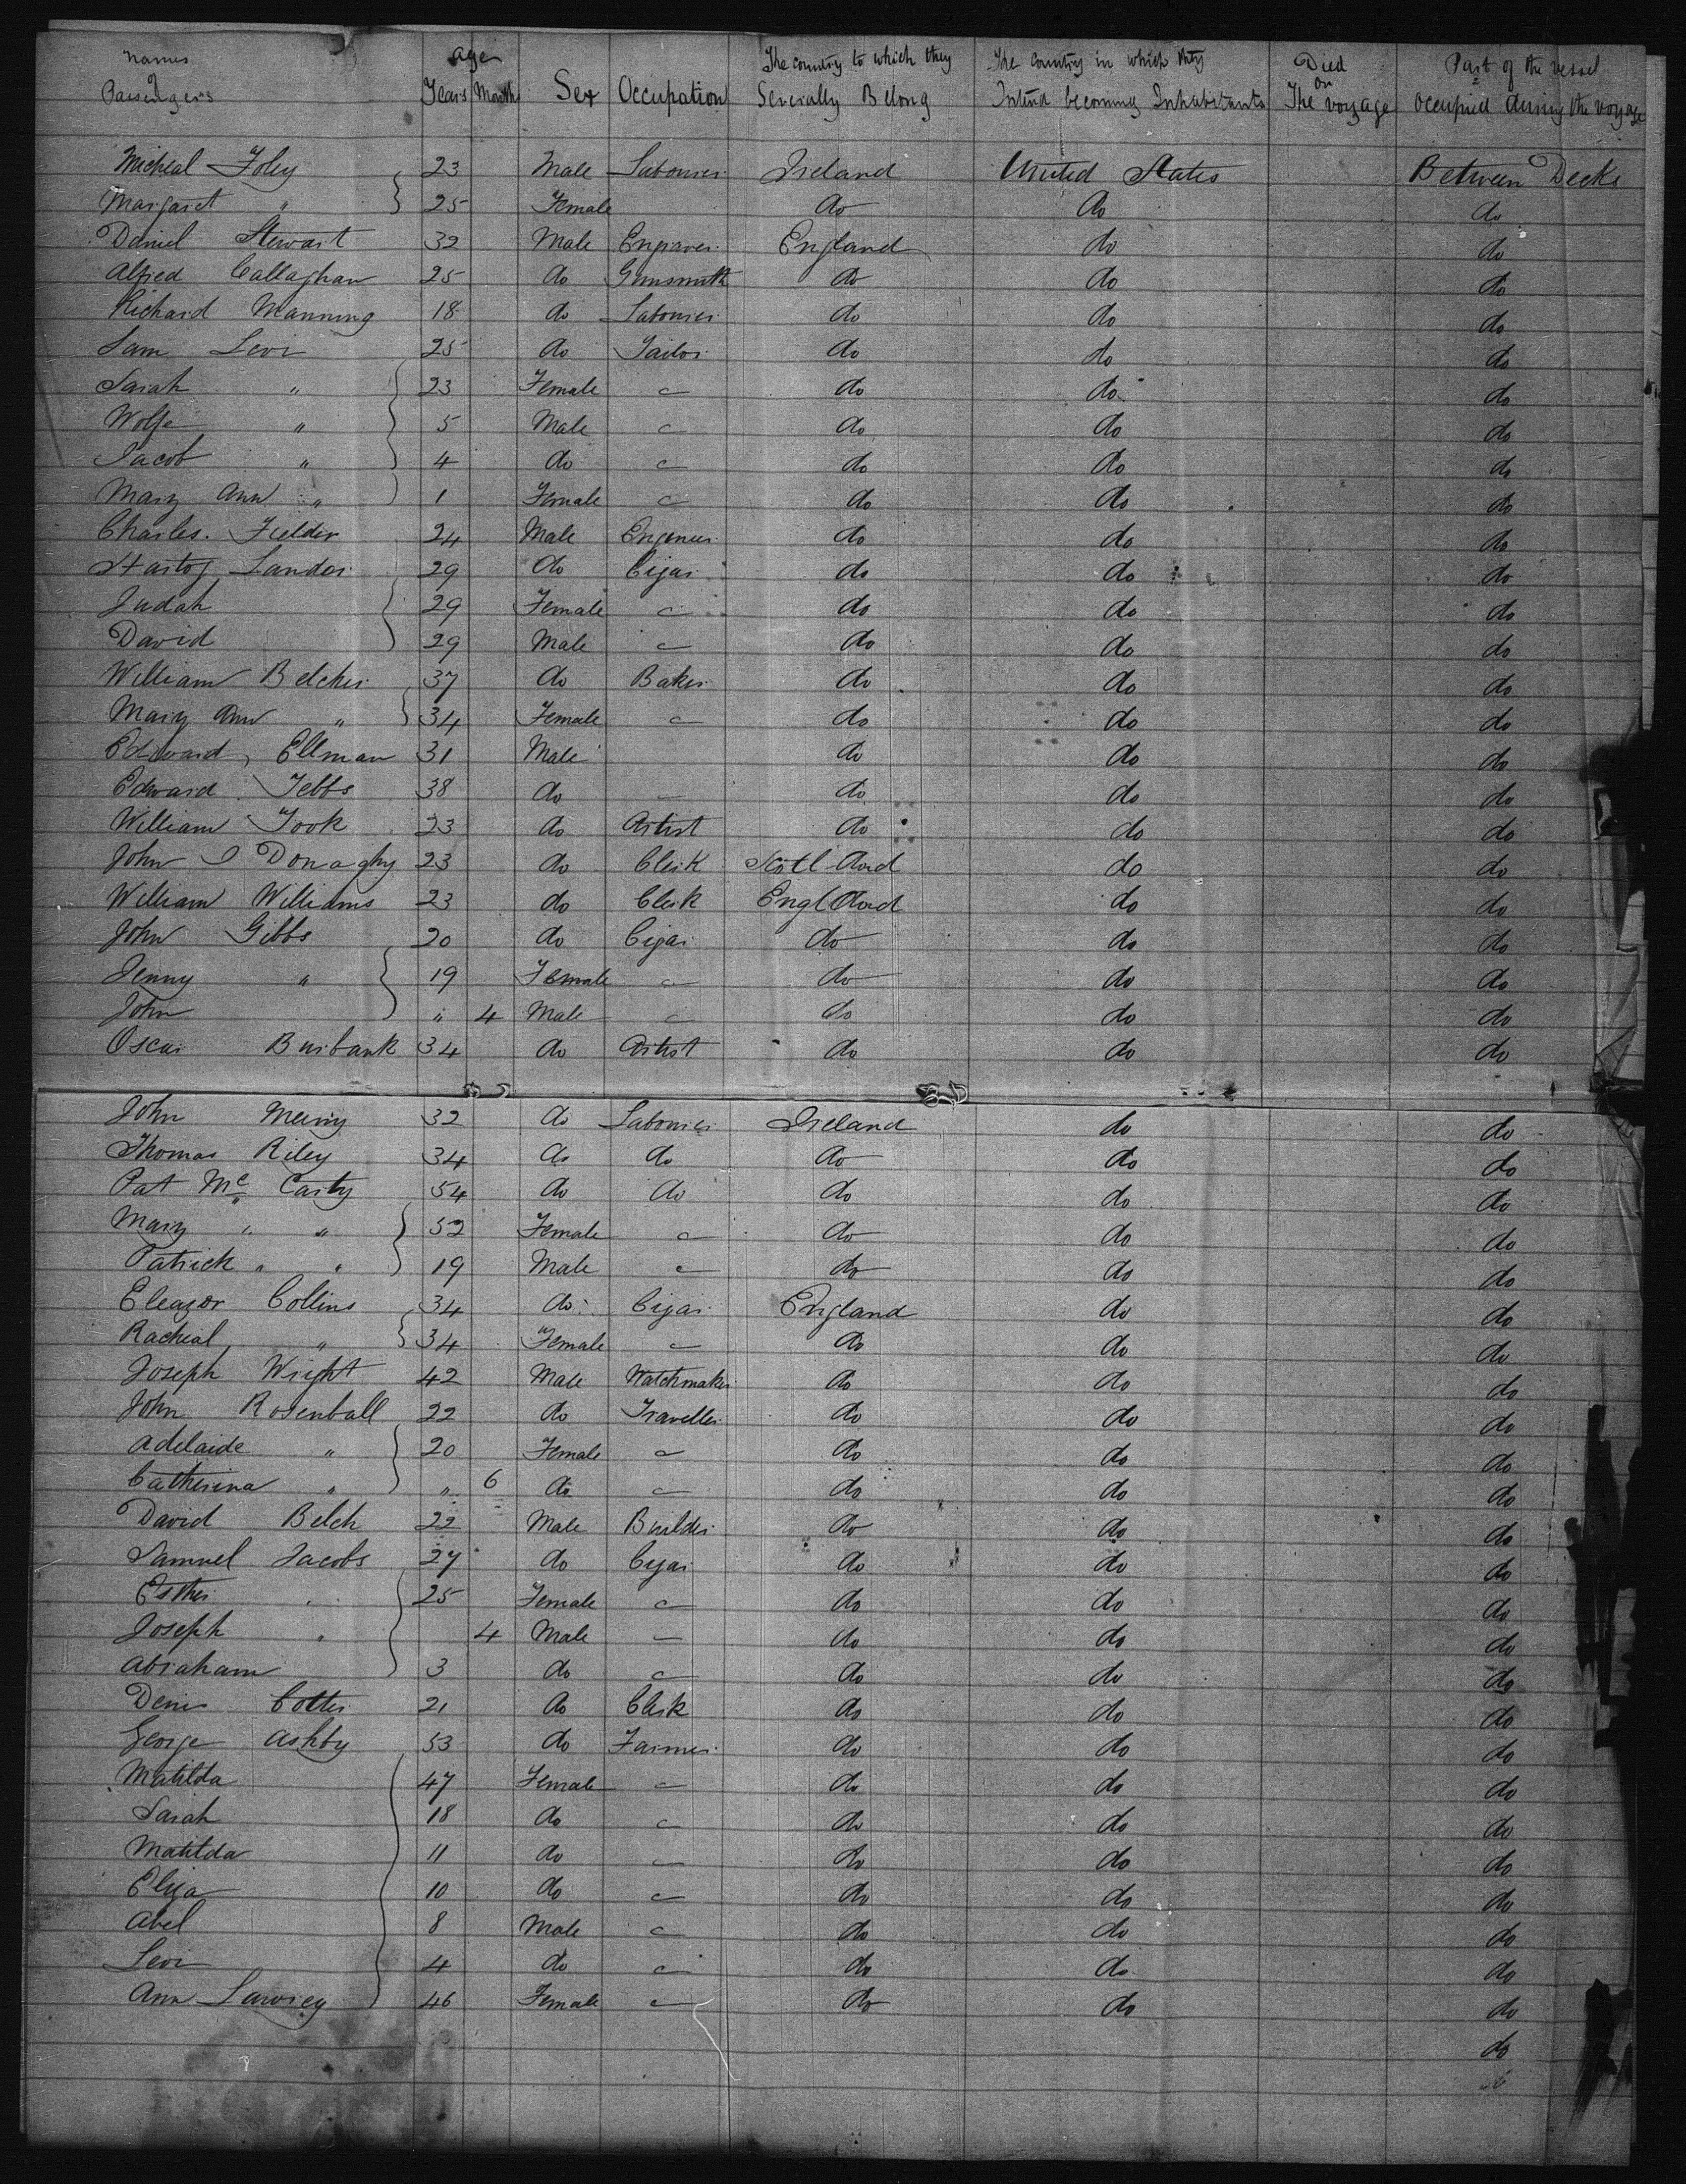 Names of Passengers Age Years Months Sex Occupation The country to which they Severally Belong The country in which they Intend becoming Inhabitants Died on The voyage Part of the vessel occupied during the voyage
Micheal Foley 23 Male Labourer Ireland United States Between Decks
Margaret " 25 Female do do do
Daniel Stewart 32 Male Engraver England do do
Alfred Callaghan 25 do Gunsmith do do do
Richard Manning 18 do Labourer do do do
Sam Levi 25 do Tailor do do do
Sarah " 23 Female " do do do
Wolfe " 5 Male " do do do
Jacob " 4 do " do do do
Mary Ann " 1 Female " do do do
Charles. Fielder 24 Male Engeneer do do do
Hartog Lander 29 do Cigar do do do
Judah 29 Female " do do do
David 29 Male " do do do
William Belcher 37 do Baker do do do
Mary Ann " 34 Female " do do do
Edward Ellman 31 Male do do do
Edward Tebbs 38 do do do do
William Took 23 do Artist do do do
John Donaghy 23 do Clerk Scotland do do
William Williams 23 do Clerk England do do
John Gibbs 20 do Cigar do do do
Jenny " 19 Female " do do do
John " 4 Male " do do do
Oscar Burbank 34 do Artist do do do
John Merry 32 do Labourer Ireland do do
Thomas Riley 34 do do do do do
Pat Mc Carty 54 do do do do do
Mary " " 52 Female " do do do
Patrick " " 19 Male " do do do
Eleazor Collins 34 do Cigar England do do
Racheal " 34 Female " do do do
Joseph Wright 42 Male Watchmaker do do do
John Rosenball 22 do Traveller do do do
Adelaide " 20 Female " do do do
Catherina " " 6 do " do do do
David Belch 22 Male Builder do do do
Samuel Jacobs 27 do Cigar do do do
Esther " 25 Female " do do do
Joseph " 4 Male " do do do
Abraham 3 do " do do do
Denis Cotter 21 do Clerk do do do
George Ashby 53 do Farmer do do do
Matilda 47 Female " do do do
Sarah 18 do " do do do
Matilda 11 do " do do do
Eliza 10 do " do do do
Abel 8 Male " do do do
Levi 4 do " do do do
Ann 46 Female " do do do
do